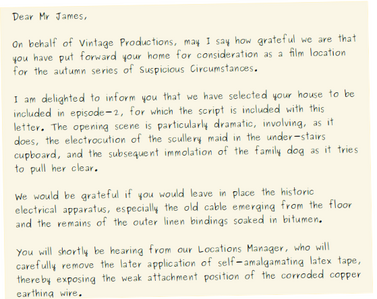 Dear Mr James,
On behalf of Vintage Productions, may I say how grateful we are that
you have put forward your home for consideration as a film location
for the autumn series of Suspicious Circumstances.
I am delighted to inform you that we have selected your house to be
included in episode-2, for which the script is included with this
letter. The opening scene is particularly dramatic, involving, as it
does, the electrocution of the scullery maid in the under-stairs
cupboard, and the subsequent immolation of the family dog as it tries
to pull her clear.
We would be grateful if you would leave in place the historic
electrical apparatus, especially the old cable emerging from the floor
and the remains of the outer linen bindings soaked in bitumen.
You will shortly be hearing from our Locations Manager, who will
carefully remove the later application of self-amalgamating latex tape,
thereby exposing the weak attachment position of the corroded copper
earthing wire.